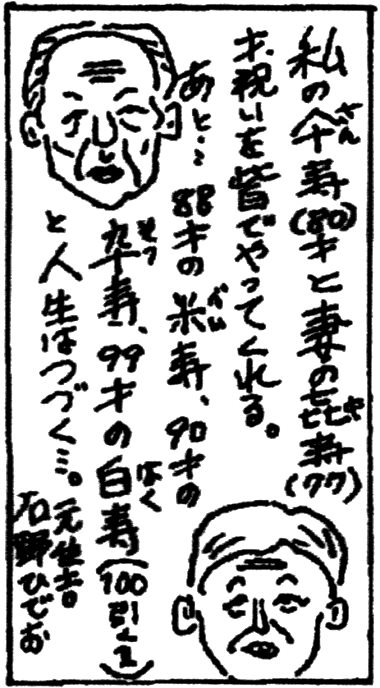 さん
私の仐寿(80)才と妻の㐂寿(77)
お祝いを皆でやってくれる。
べい
あと… 88才の米寿、90才の
そつ はく
卆寿、99才の白寿(100引く1)
と人生はつづく…。
元住吉。
石野ひでお